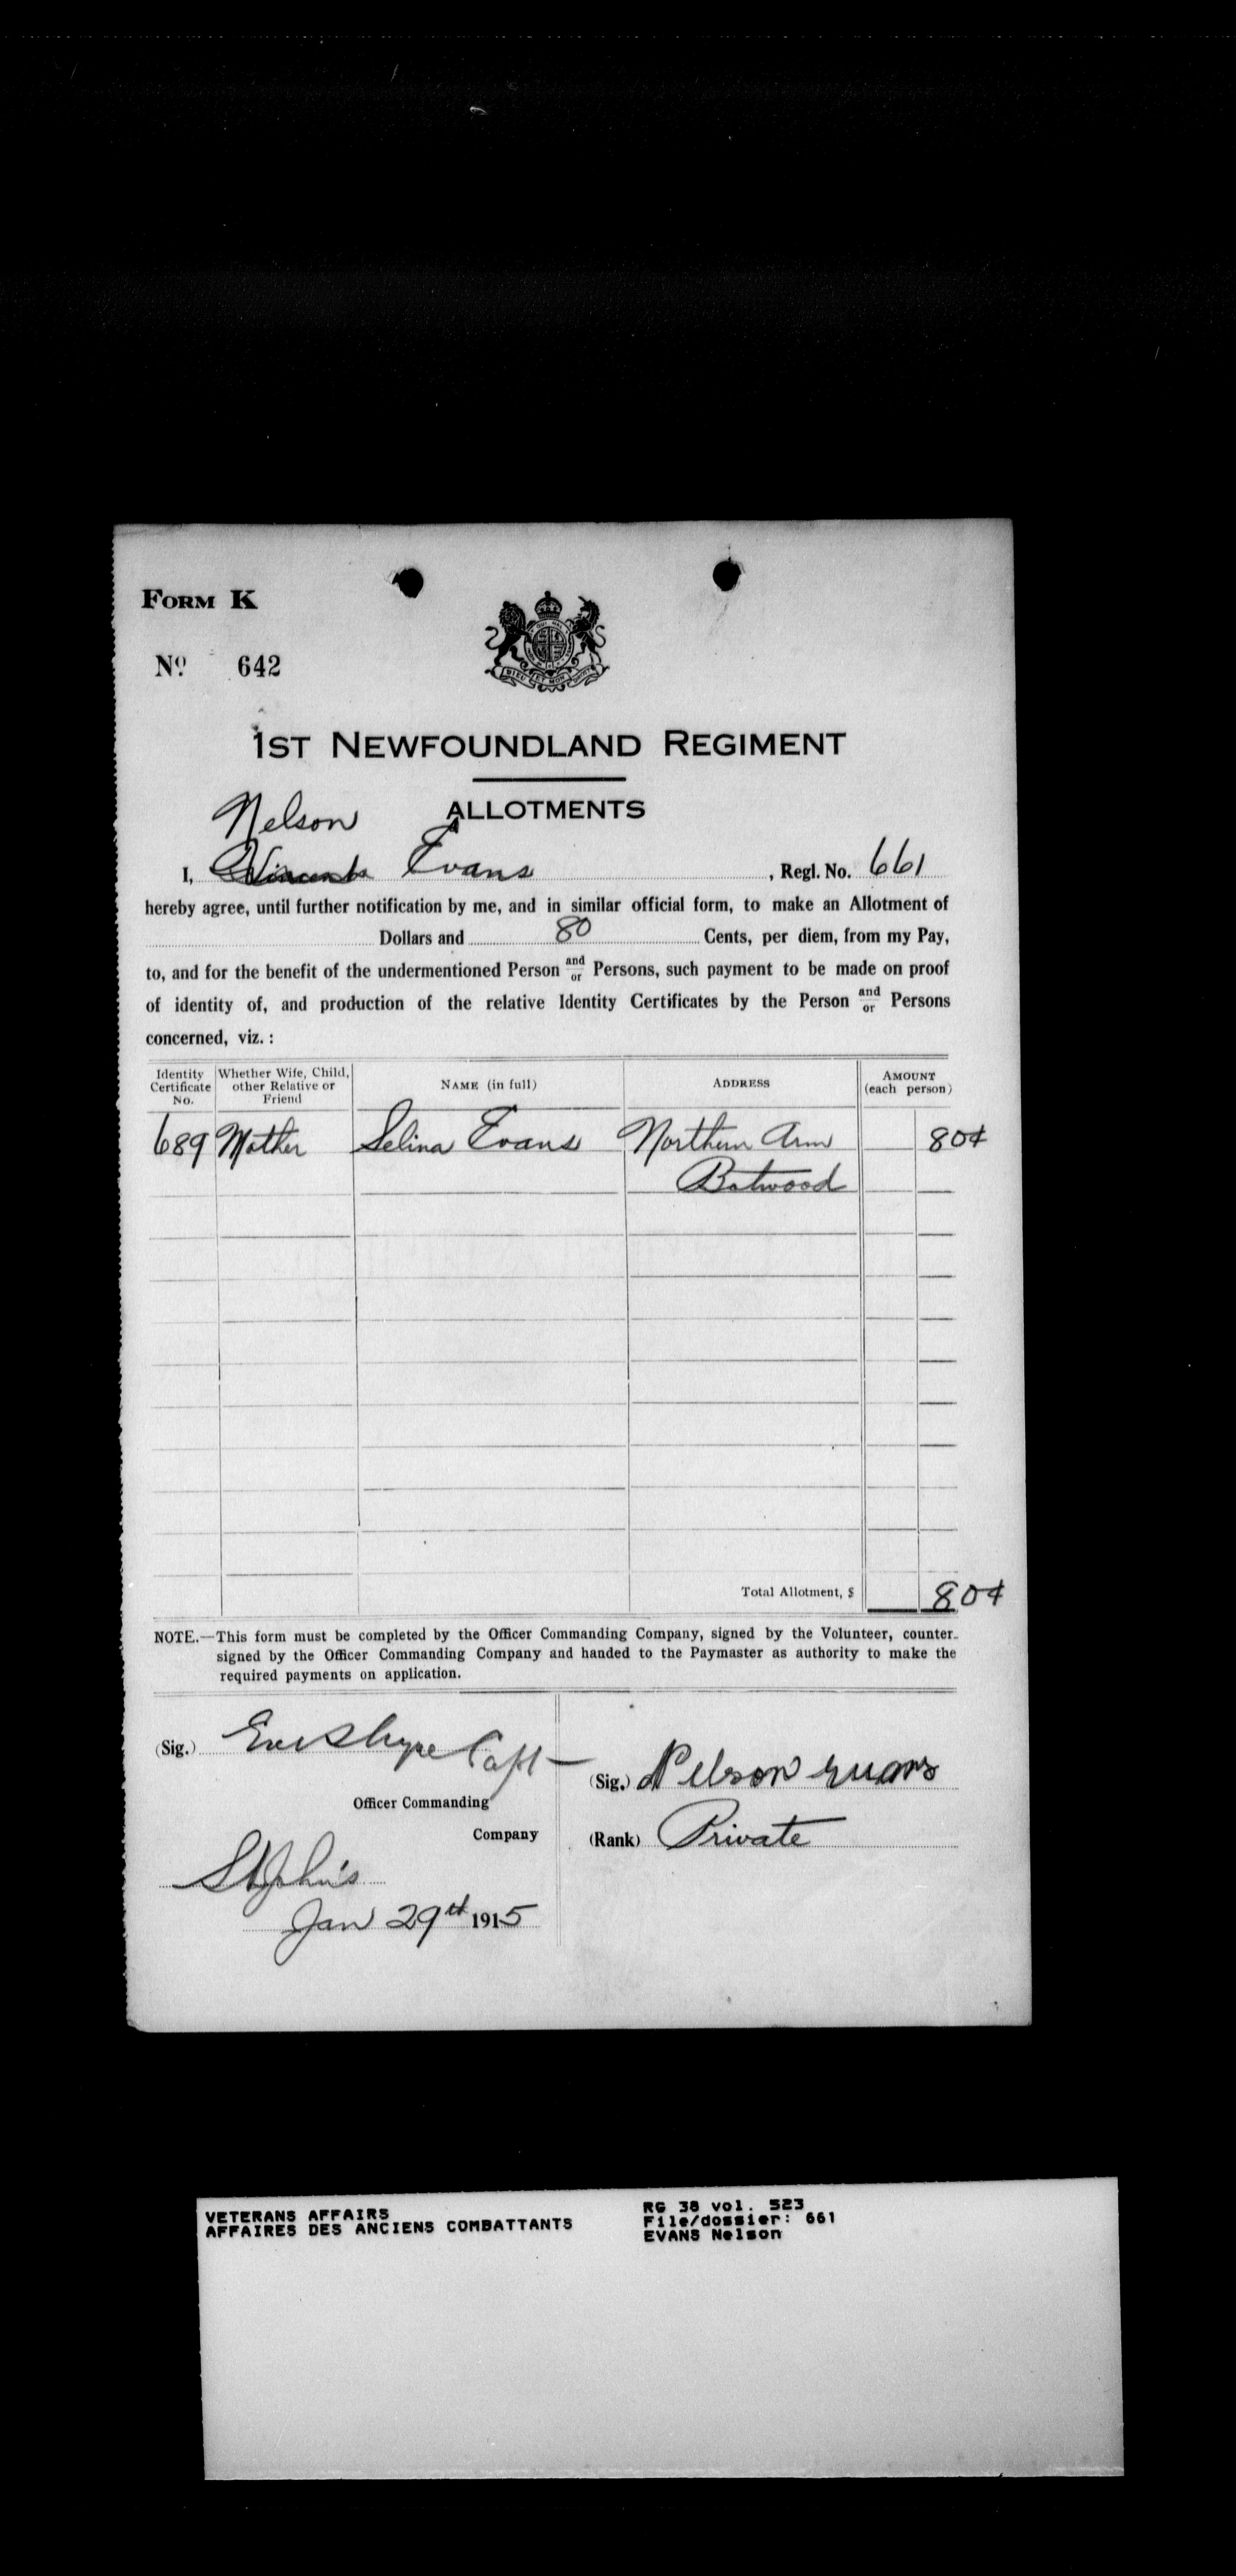 FORM K
No 642
1ST NEWFOUNDLAND REGIMENT
ALLOTMENTS
Nelson
I, Vincent Evans, Regl. No. 661
hereby agree, until further notification by me, and in similar official form, to make an Allotment of
Dollars and 80 Cents, per diem, from my Pay,
to, and for the benefit of the undermentioned Person and/or Persons, such payment to be made on proof
of identity of, and production of the relative Identity Certificates by the Person and/or Persons
concerned, viz. :
Identity Certificate No. Whether Wife, Child, other Relative or Friend NAME (in full) ADDRESS AMOUNT (each person)
689 Mother Selina Evans Northern Arm 80¢
Botwood
Total Allotment, $ 80¢
NOTE.—This form must be completed by the Officer Commanding Company, signed by the Volunteer, counter-
signed by the Officer Commanding Company and handed to the Paymaster as authority to make the
required payments on application.
(Sig.) Capt
Officer Commanding
Company
(Sig.) Nelson Evans
(Rank) Private
St John's
Jan 29th 1915
VETERANS AFFAIRS
AFFAIRES DES ANCIENS COMBATTANTS
RG 38 vol. 523
File/dossier: 661
EVANS Nelson